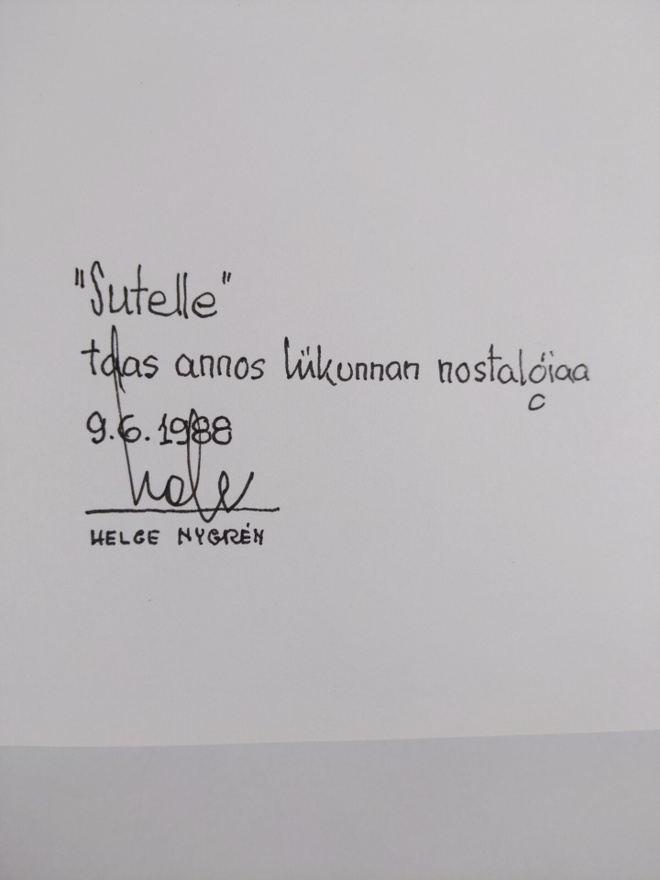 "Sutelle"
taas annos liikunnan nostalgiaa
9.6.1988
HELGE NYGRÉN